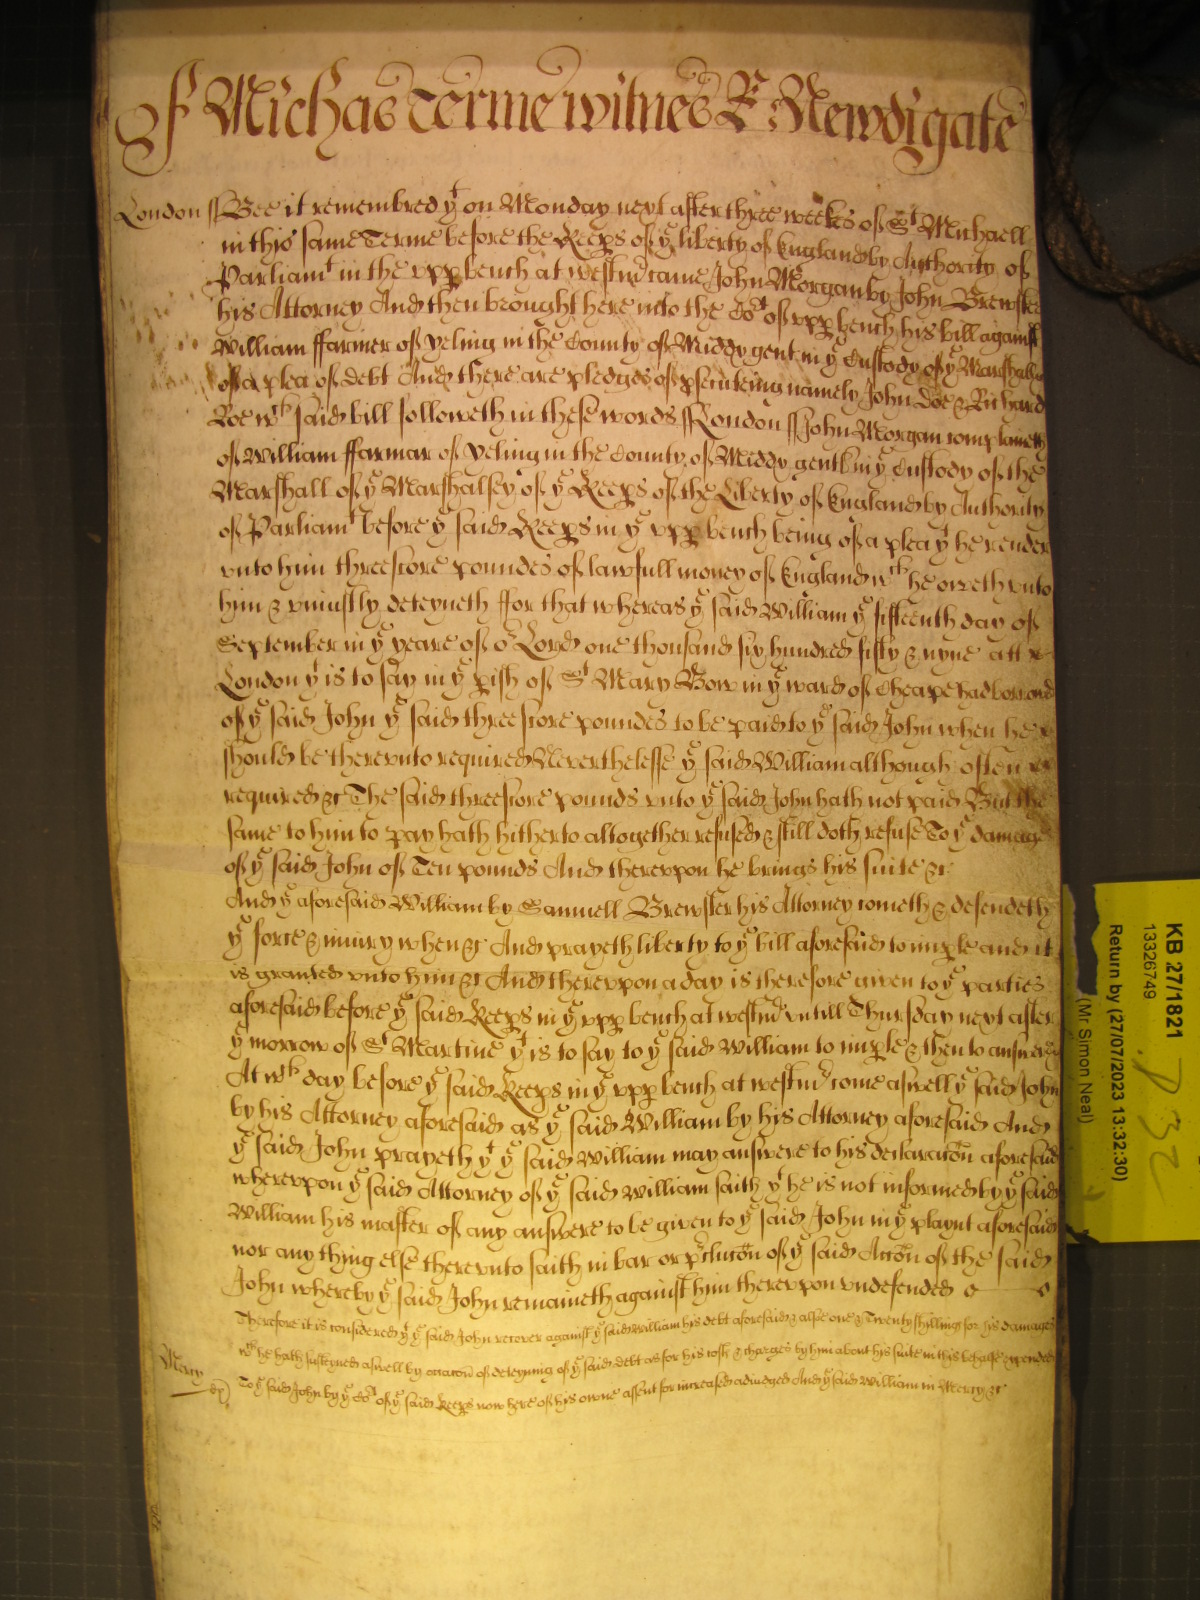 Of Michas Terme witnes R Newdigate
London ss Bee it remembred yt on Monday next after three weekes of St Michaell
in this same Terme before the Keeps of ye liberty of England by Authority of
Parliamt in the upp bench at westmr came John Morgan by John Brewster
his Attorney And then brought here into the Cot of upp bench his bill against
William ffarmer of Yeling in the County of Middx gent in ye Custody of ye Marshall &c
of a plea of debt And there are pledges of psecuteing namely John Doe & Richard
Roe wch said bill followeth in these words ss London ss John Morgan complaineth
of William ffarmar of Yeling in the County of Middx gentl in ye Custody of the
Marshall of ye Marshalsey of ye Keeps of the Liberty of England by Authority
of Parliamt before ye said Keeps in ye upp bench being of a plea yt he render
unto him threescore poundes of lawfull money of England wch he oweth unto
him & uniustly deteyneth ffor that whereas ye said William ye fifteenth day of
September in ye yeare of or Lord one thousand six hundred fifty & nyne att
London yt is to say in ye pish of St Mary Bow in ye ward of Cheape had borrowed
of ye said John ye said threescore poundes to be paid to ye said John when he
should be thereunto required Neverthelesse ye said William although often
required &c The said threescore pounds unto ye said John hath not paid But the
same to him to pay hath hitherto altogether refused & still doth refuse To ye damage
of ye said John of Ten pounds And thereupon he brings his suite &c
And ye aforesaid William by Samuell Brewster his Attorney cometh & defendeth
ye force & iniury when &c And prayeth liberty to ye bill aforesaid to imple and it
is granted unto him &c And thereupon a day is therefore given to ye parties
aforesaid before ye said Keeps in ye upp bench at westmr untill Thursday next after
ye morrow of St Martine yt is to say to ye said William to imple & then to answere &c
At wch day before ye said Keeps in ye upp bench at westmr come aswell ye said John
by his Attorney aforesaid as ye said William by his Attorney aforesaid And
ye said John prayeth yt ye said William may answere to his declaracon aforesaid
whereupon ye said Attorney of ye said William saith yt he is not informed by ye said
William his master of any answere to be given to ye said John in ye playnt aforesaid
nor any thing else thereunto saith in bar or pclucon of ye said Accon of the said
John whereby ye said John remaineth against him thereupon undefended
Therefore it is considered yt ye said John recover against ye said William his debt aforesaid & alsoe one & Twenty shillings for his damages
wch he hath susteyned aswell by occacon of deteyning of ye said debt as for his costs & charges by him about his suite in this behalfe expended
Mercy
To ye said John by ye Cot of ye said Keeps now here of his owne assent for increase adiudged And ye said William in Mercy &c
KB 27/1821
13326749
Return by (27/07/2023 13:32:30)
(Mr Simon Neal)